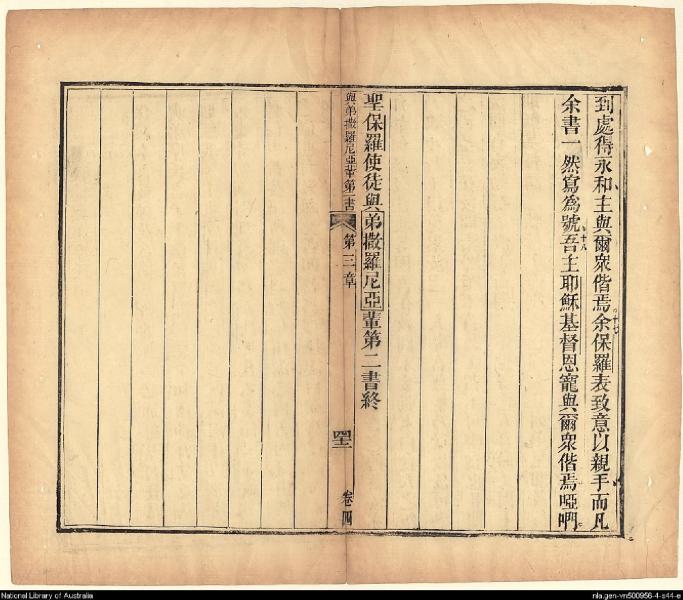 到處得永和主與爾眾偕焉十七余保羅表致意以親手而凡
余書一然寫為號十八吾主耶穌基督恩寵與爾眾偕焉啞𠵽
聖保羅使徒與弟撒羅尼亞輩第二書終
與弟撒羅尼亞輩第二書
第三章
卷四
National Library of Australia
nla.gen-vn500956-4-s44-e